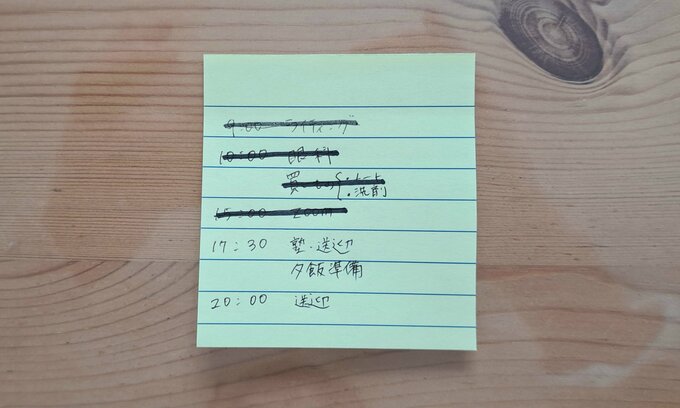 9:00 ライティング
10:00 眼科
買い物{・ノート
・洗剤
15:00 ZOOM
17:30 塾・送迎
夕飯準備
20:00 送迎